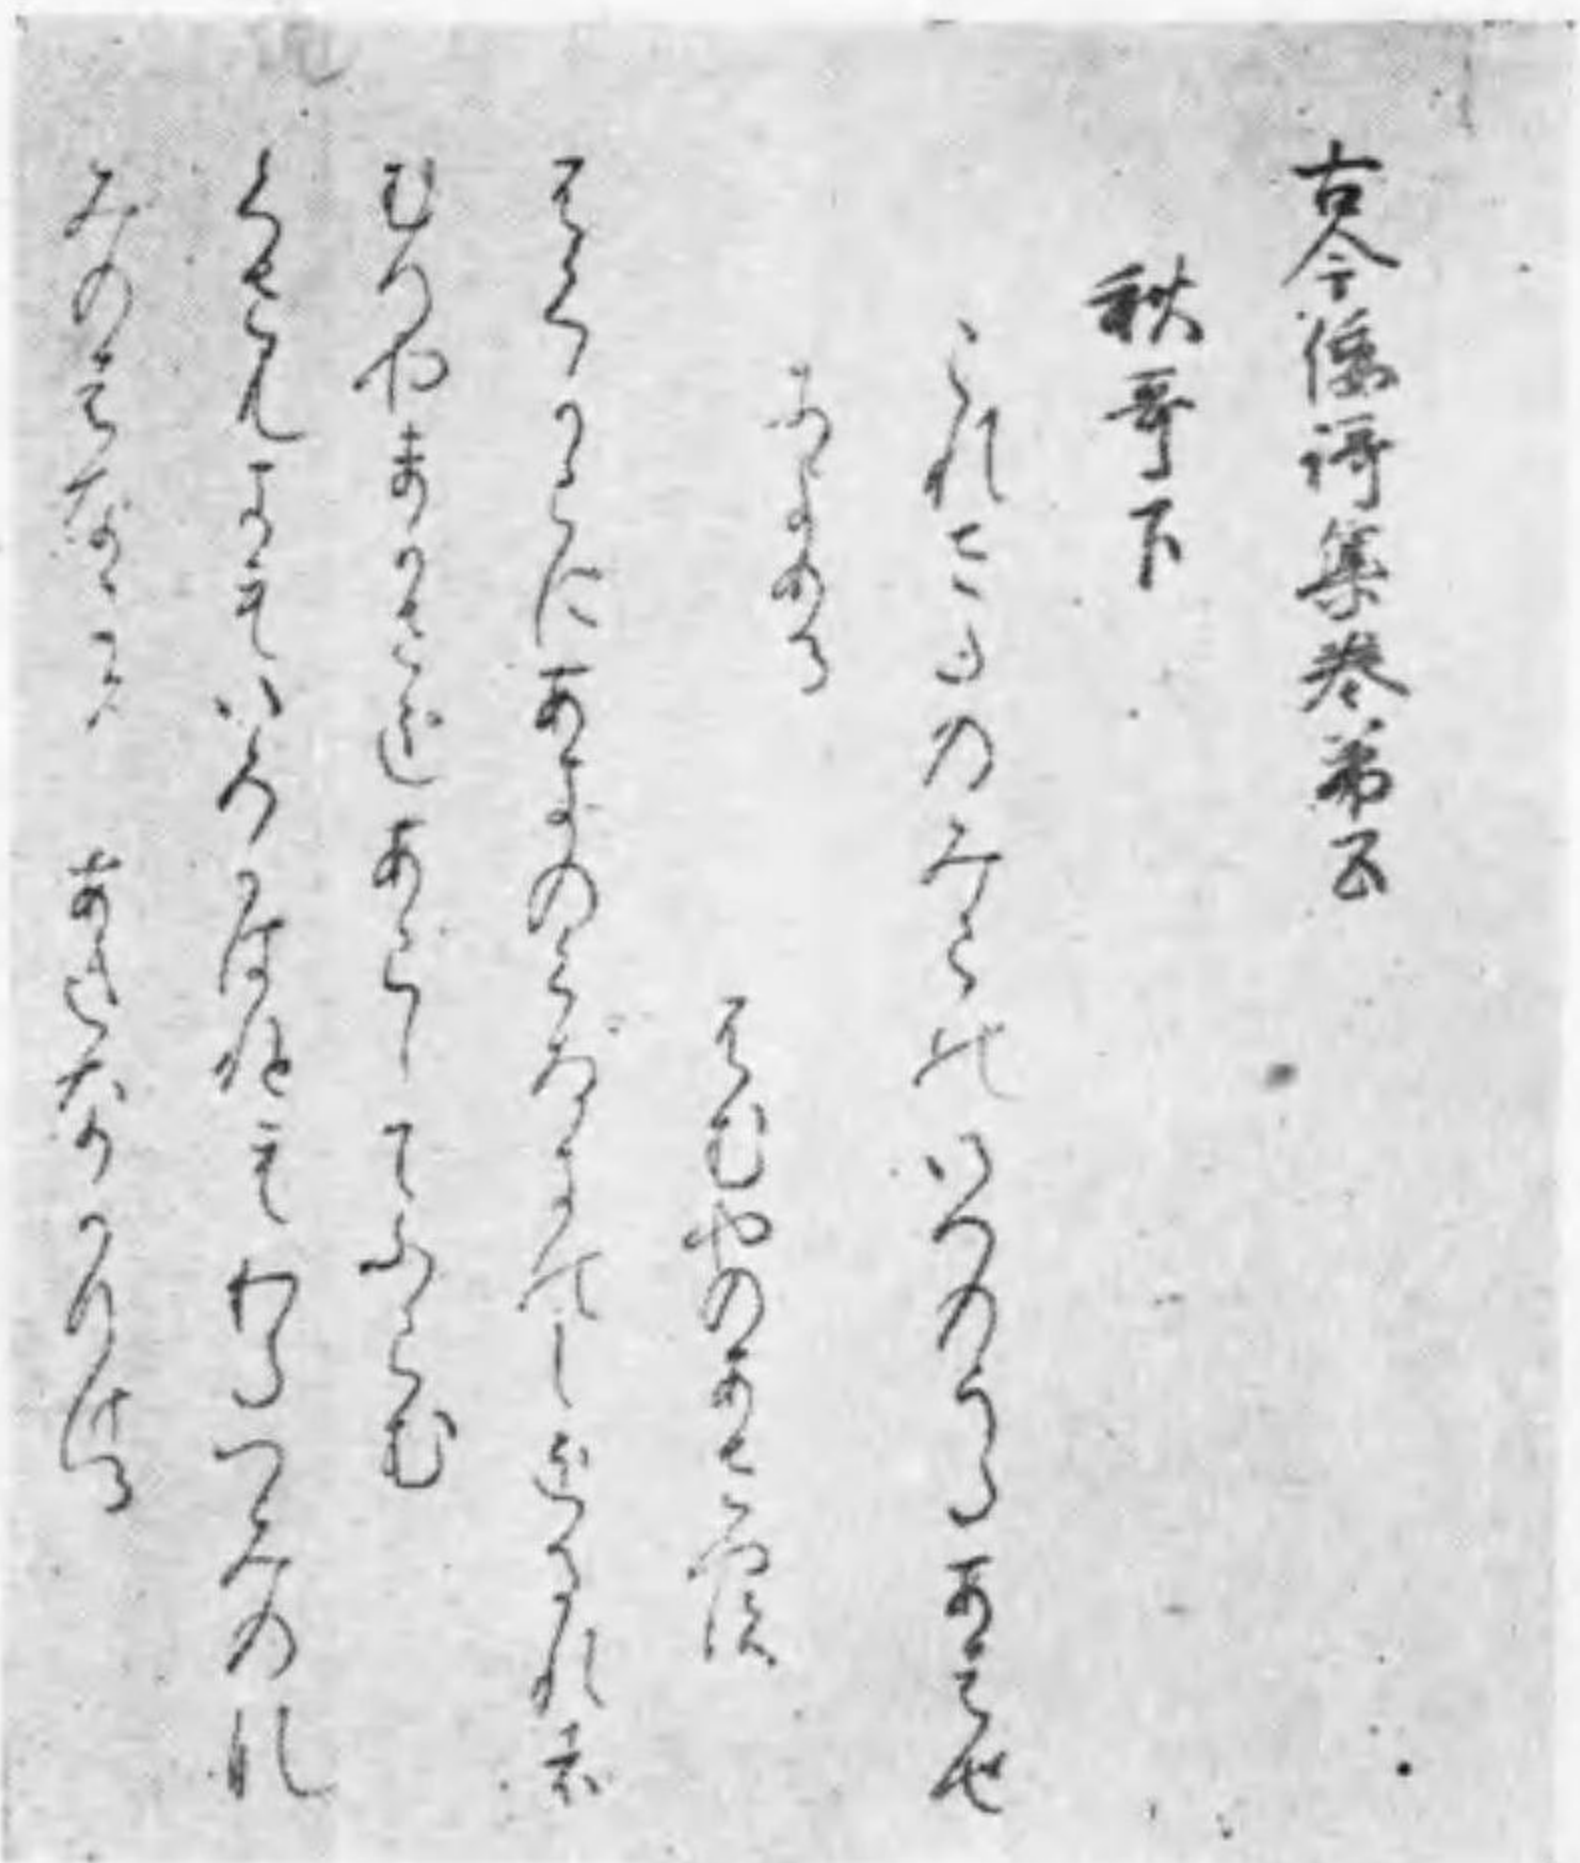 古今倭謌集巻第五
秋哥下
これさたのみこのいへのうたあはせ
によめる
ふむやのあさやす
ふくからにあきのくさきのしをるれは
むへやまかせをあらしてふらむ
くさもきもいろかはれともわたつみのな
みのはなにそ あきなかりける